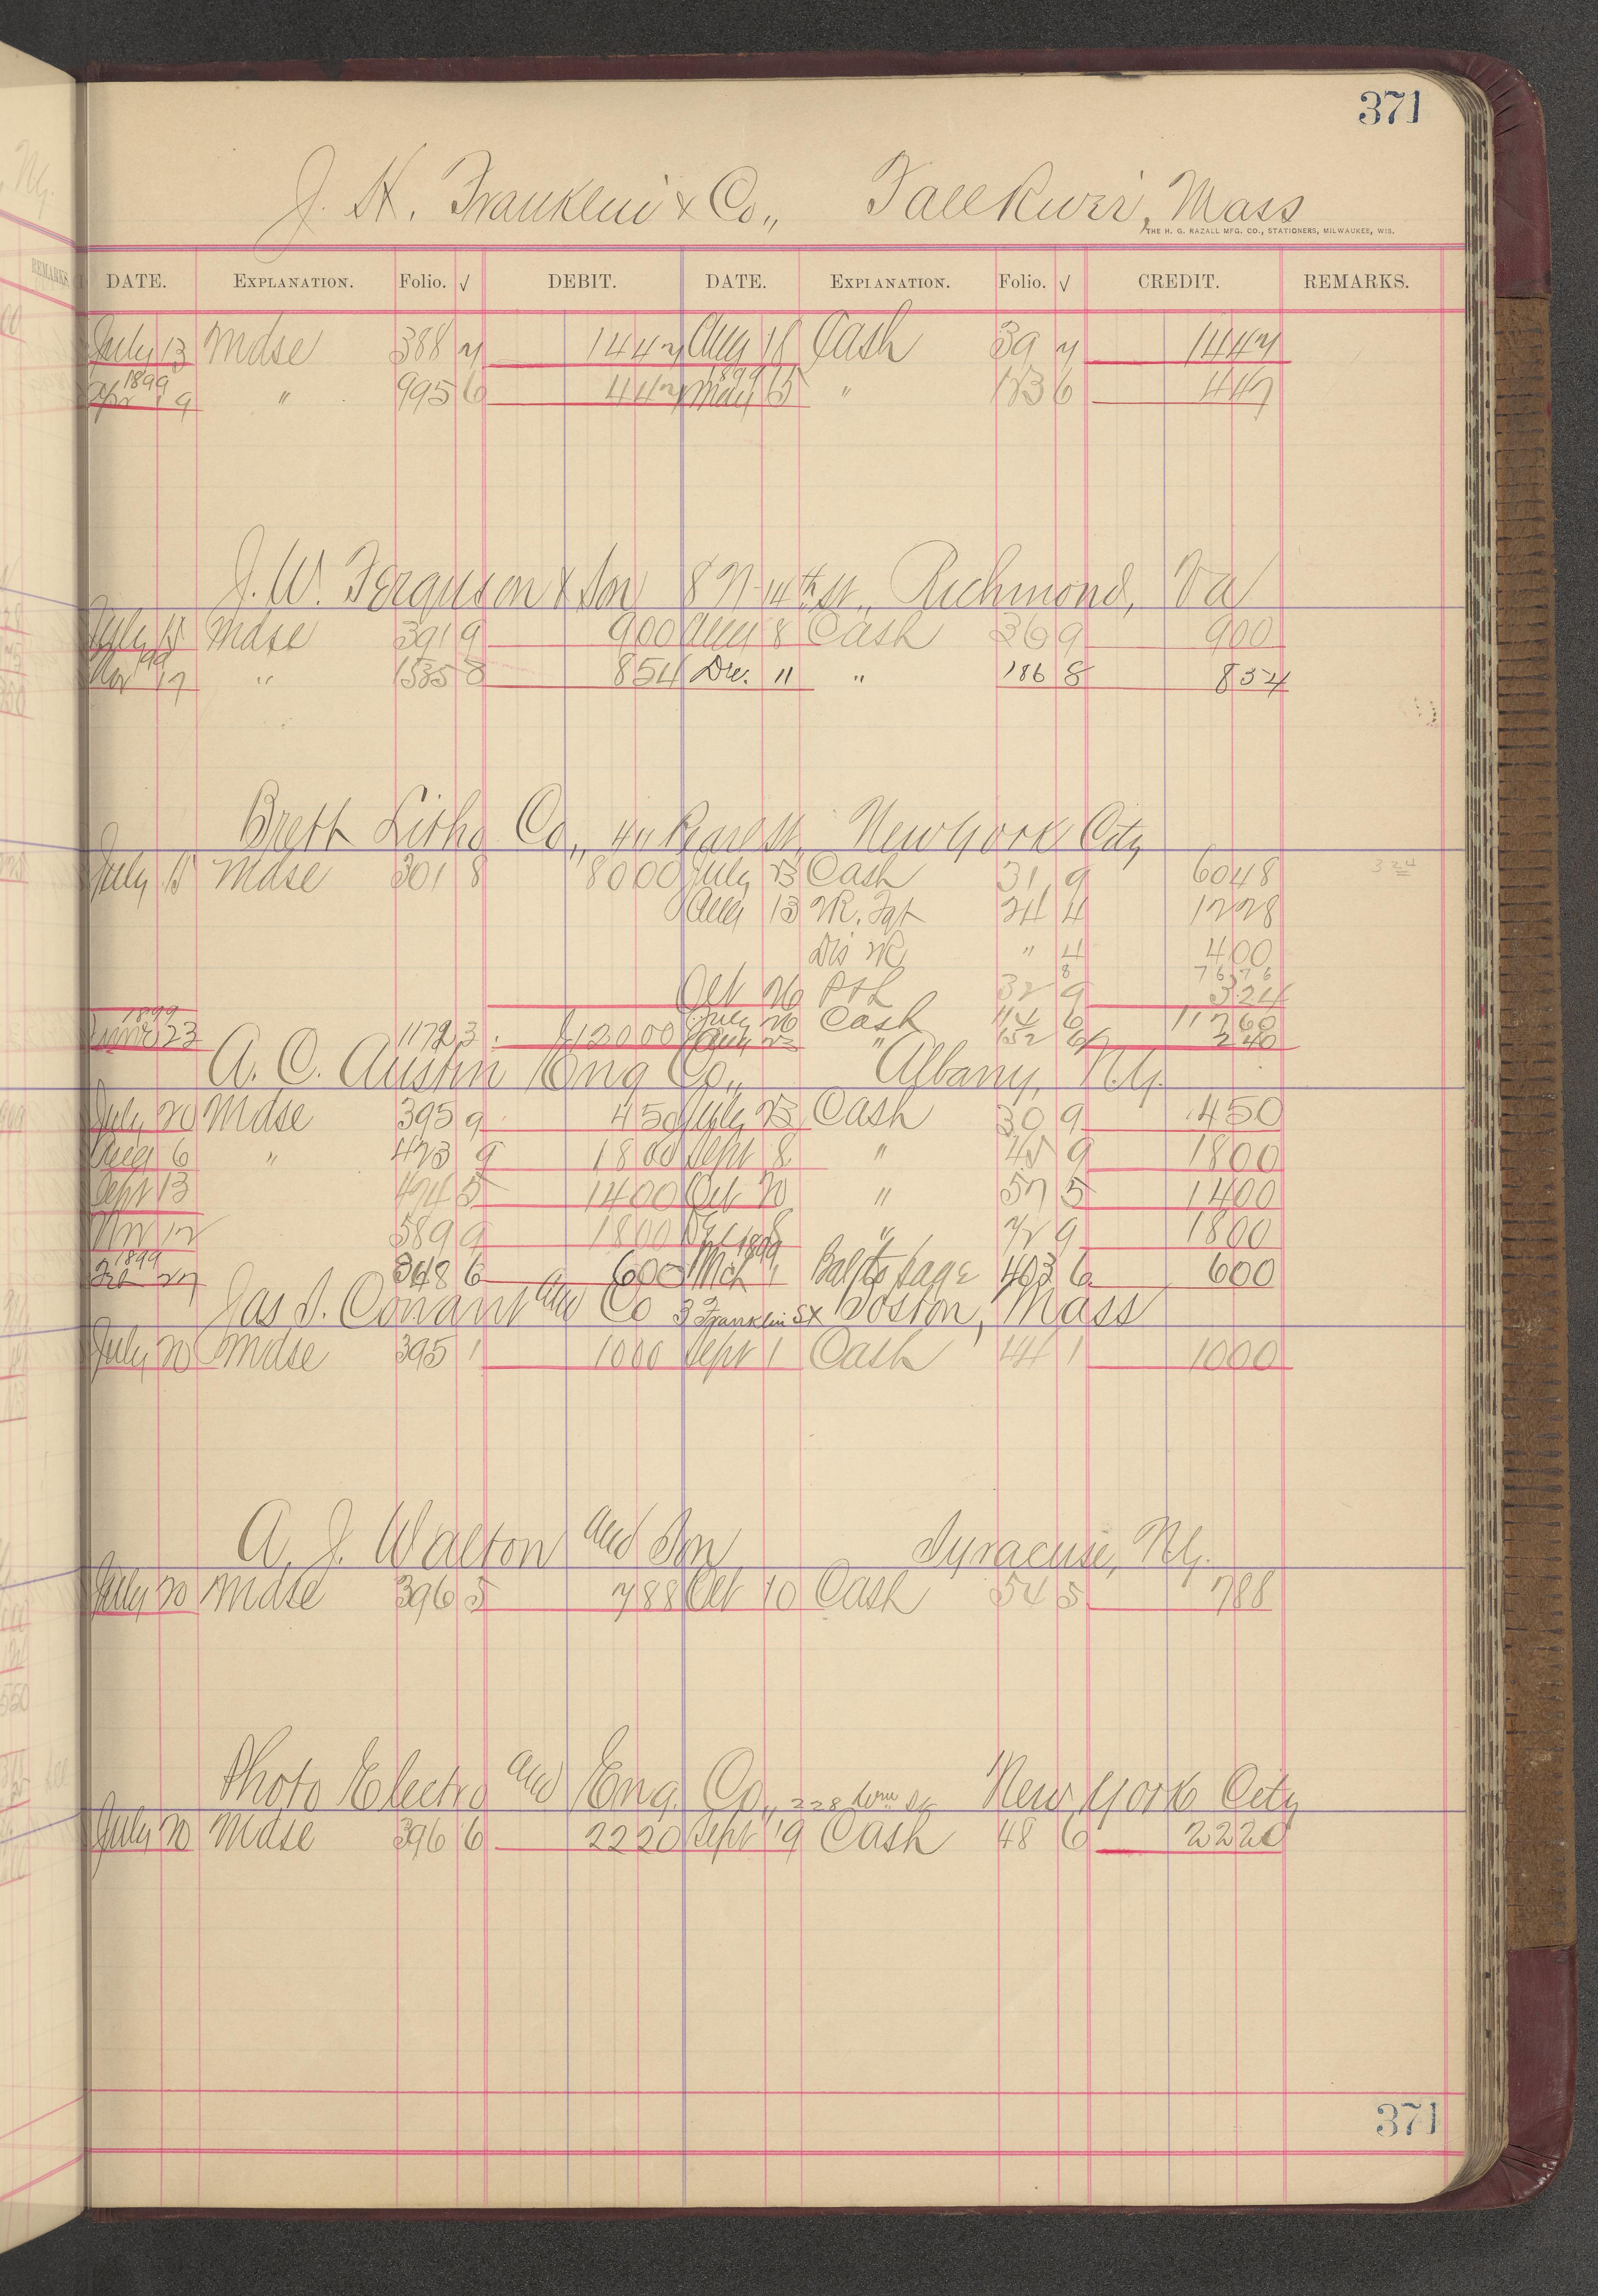 371
J. H. Franklin & Co., Fall River, Mass
THE H. G. RAZALL MFG. CO., STATIONERS, MILWAUKEE, WIS.
DATE. EXPLANATION. Folio. √ DEBIT. DATE. EXPLANATION. Folio. √ CREDIT. REMARKS.
July 13 Mdse 388 7 1447 Aug 18 Cash 39 7 1447
1899 1899
Apr 19 " 995 6 447 May 15 " 173 6 447
J. W. Ferguson & Son 8 N 14th st., Richmond, Va
July 15 Mdse 391 9 900 Aug 8 Cash 36 9 900
99
Nov 17 " 1535 8 854 Dec. 11 " 186 8 854
Brett Litho Co., 411 Pearl St, New York City
July 15 Mdse 301 8 8000 July 23 Cash 31 9 6048 324
Aug 13 N.R. Fgt 24 4 1228
Dis NR " 4 400
8 7676
Oct 26 P & L 32 9 324
1899
June 23 1172 3 12000 July 20 Cash 114 6 11760
Aug 23 " 152 6 240
A. C. Austin Eng Co., Albany, N.Y.
July 20 Mdse 395 9 450 July 23 Cash 30 9 450
Aug 6 " 423 9 1800 Sept 8 " 45 9 1800
Sept 13 474 5 1400 Oct 20 " 57 5 1400
Nov 12 589 9 1800 Dec 8 " 72 9 1800
1899 1899
Feb 27 348 6 600 Mch 1 Bal to page 403 6 600
Jas S. Conant and Co 3 Franklin St Boston, Mass
July 20 Mdse 395 1 1000 Sept 1 Cash 44 1 1000
A. J. Walton and Son Syracuse, N.Y.
July 20 Mdse 396 5 788 Oct 10 Cash 54 5 788
Photo Electro and Eng. Co., 228 New York City
July 20 Mdse 396 6 2220 Sept 19 Cash 48 6 2220
371